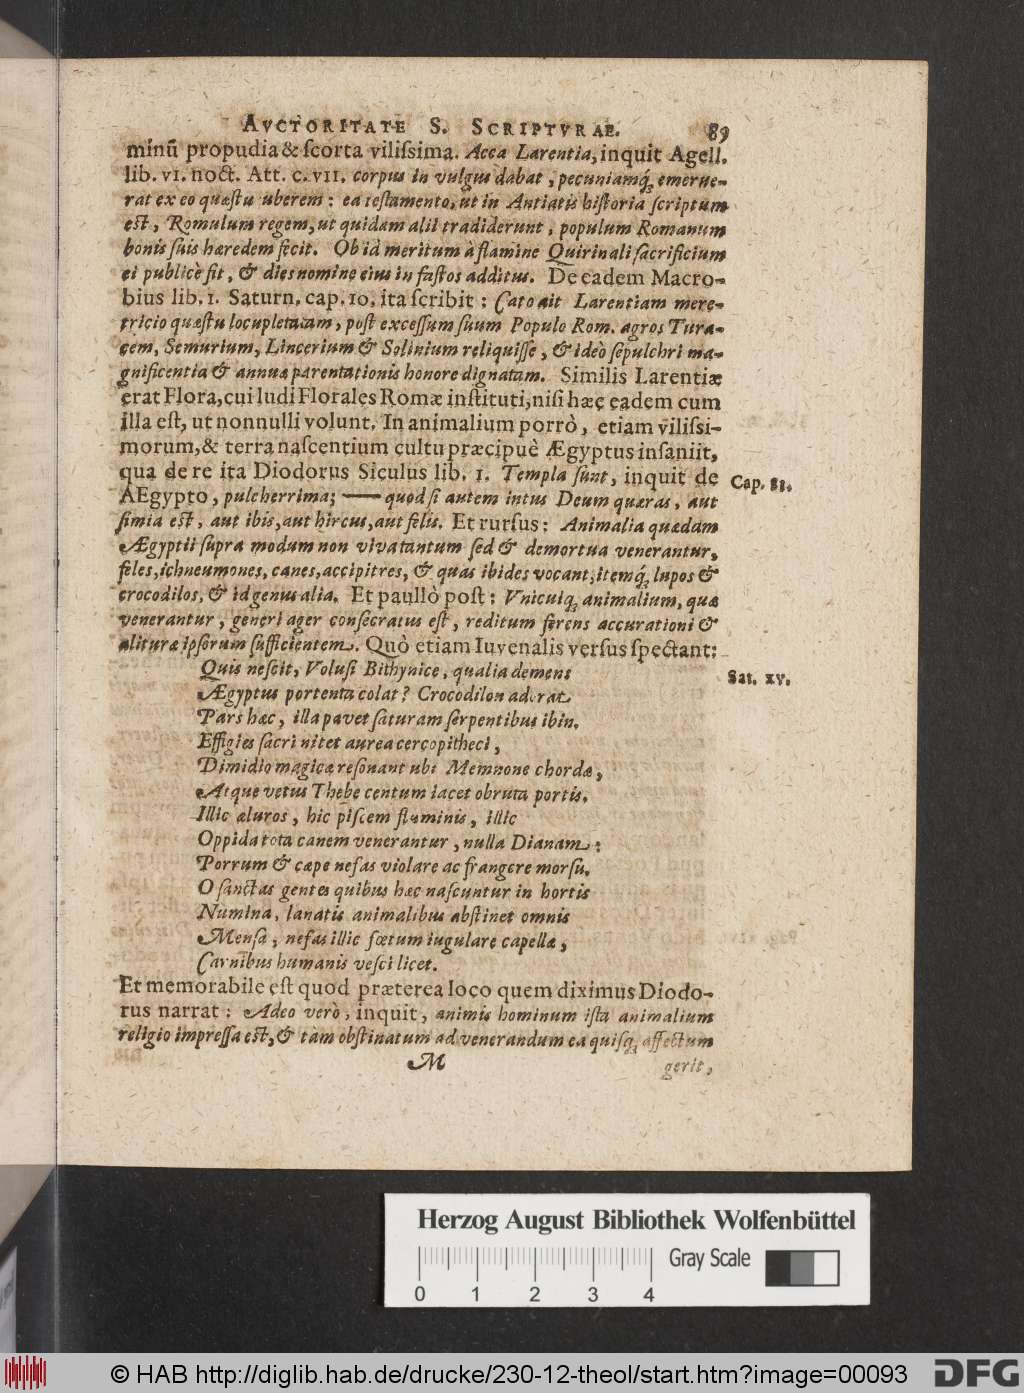 AVCTORITATE S. SCRIPTVRAE. 89
minū propudia & ſcorta viliſsima. Acca Larentia, inquit Agell.
lib. VI. noct. Att. c. VII. corpus in vulgus dabat, pecuniamq́; emerue-
rat ex eo quæstu uberem: ea testamento, ut in Antiatis hiſtoria ſcriptum
eſt, Romulum regem, ut quidam alii tradiderunt, populum Romanum
bonis ſuis hæredem fecit. Ob id meritum à flamine Quirinali ſacrificium
ei publicè fit, & dies nomine eius in faſtos additus. De eadem Macro-
bius lib. 1. Saturn. cap. 10. ita ſcribit: Cato ait Larentiam mere-
tricio quæſtu locupletatam, poſt exceſſum ſuum Populo Rom. agros Tura-
cem, Semurium, Lincerium & Solinium reliquiſſe, & ideò ſepulchri ma-
gnificentia & annua parentationis honore dignatam. Similis Larentiæ
erat Flora, cui ludi Florales Romæ inſtituti, niſi hæc eadem cum
illa eſt, ut nonnulli volunt. In animalium porrò, etiam viliſsi-
morum, & terra naſcentium cultu præcipuè Ægyptus inſaniit,
qua de re ita Diodorus Siculus lib. 1. Templa ſunt, inquit de
AEgypto, pulcherrima; —— quod ſi autem intus Deum quæras, aut
Cap. 83.
ſimia eſt, aut ibis, aut hircus, aut felis. Et rurſus: Animalia quædam
Ægyptii ſupra modum non viva tantum ſed & demortua venerantur,
feles, ichneumones, canes, accipitres, & quas ibides vocant; itemq́; lupos &
crocodilos, & id genus alia. Et paullò poſt: Vnicuiq; animalium, quæ
venerantur, generi ager conſecratus eſt, reditum ferens accurationi &
alituræ ipſorum ſufficientem. Quò etiam Iuvenalis verſus ſpectant:
Quis neſcit, Voluſi Bithynice, qualia demens
Sat. XV.
Ægyptus portenta colat? Crocodilon adorat
Pars hæc, illa pavet ſaturam ſerpentibus ibin.
Effigies ſacri nitet aurea cercopitheci,
Dimidio magicæ reſonant ubi Memnone chordæ,
Atque vetus Thebe centum iacet obruta portis.
Illic æluros, hic piſcem fluminis, illic
Oppida tota canem venerantur, nulla Dianam:
Porrum & cæpe nefas violare ac frangere morſu.
O ſanctas gentes quibus hæc naſcuntur in hortis
Numina, lanatis animalibus abſtinet omnis
Menſa, nefas illic fœtum iugulare capellæ,
Carnibus humanis veſci licet.
Et memorabile eſt quod præterea loco quem diximus Diodo-
rus narrat: Adeo verò, inquit, animis hominum iſta animalium
religio impreſſa eſt, & tàm obſtinatum ad venerandum ea quiſq; affectum
M gerit,
Herzog August Bibliothek Wolfenbüttel
Gray Scale
0 1 2 3 4
© HAB http://diglib.hab.de/drucke/230-12-theol/start.htm?image=00093
DFG